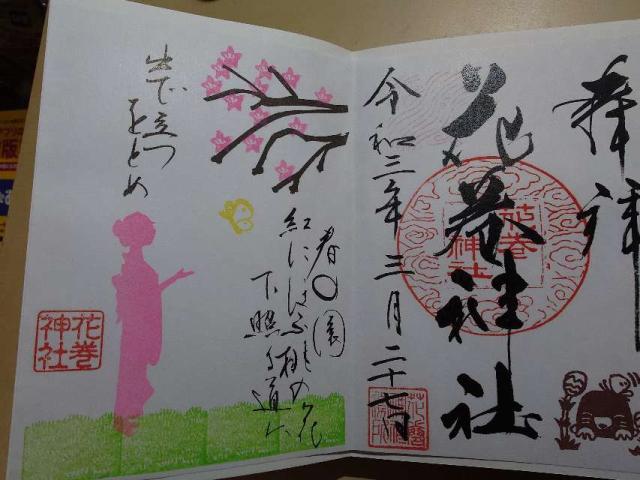 奉拝
花巻神社
花巻
神社
令和三年三月二十七日
春の園
紅にほふ桃の花
下照る道に
出で立つ
をとめ
花巻
神社